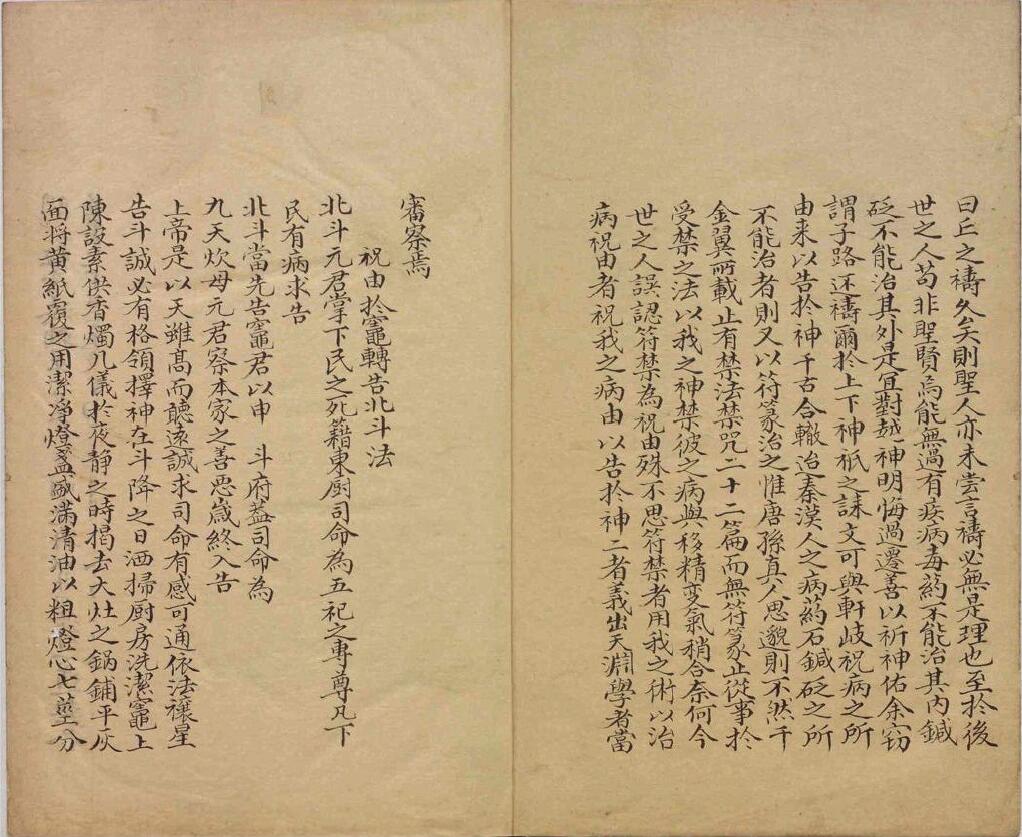 曰丘之禱久矣則聖人亦未嘗言禱必無是理也至於後
世之人苟非聖賢焉能無過有疾病毒药不能治其内鍼
砭不能治其外是宜對越神明悔過遷善以祈神佑余窃
謂子路还禱爾於上下神祇之誄文可與軒岐祝病之所
由来以告於神千古合轍迨秦漢人之病药石鍼砭之所
不能治者則又以符篆治之惟唐孫真人思邈則不然千
金翼所載止有禁法禁咒二十二篇而無符篆止從事於
受禁之法以我之神禁彼之病與移精变氣稍合奈何今
世之人誤認符禁為祝由殊不思符禁者用我之術以治
病祝由者祝我之病由以告於神二者義出天淵學者當
審察焉
祝由於竈轉告北斗法
北斗元君掌下民之死籍東厨司命為五祀之專尊凡下
民有病求告
北斗當先告竈君以申 斗府葢司命為
九天炊母元君察本家之善恶歲終入告
上帝是以天雖髙而聽遠誠求司命有感可通依法禳星
告斗誠必有格領擇神在斗降之日洒掃厨房洗潔竈上
陳設素供香燭几儀於夜静之時揭去大灶之鍋鋪平灰
面将黄紙覆之用潔净燈盏盛滿清油以粗燈心七莖分